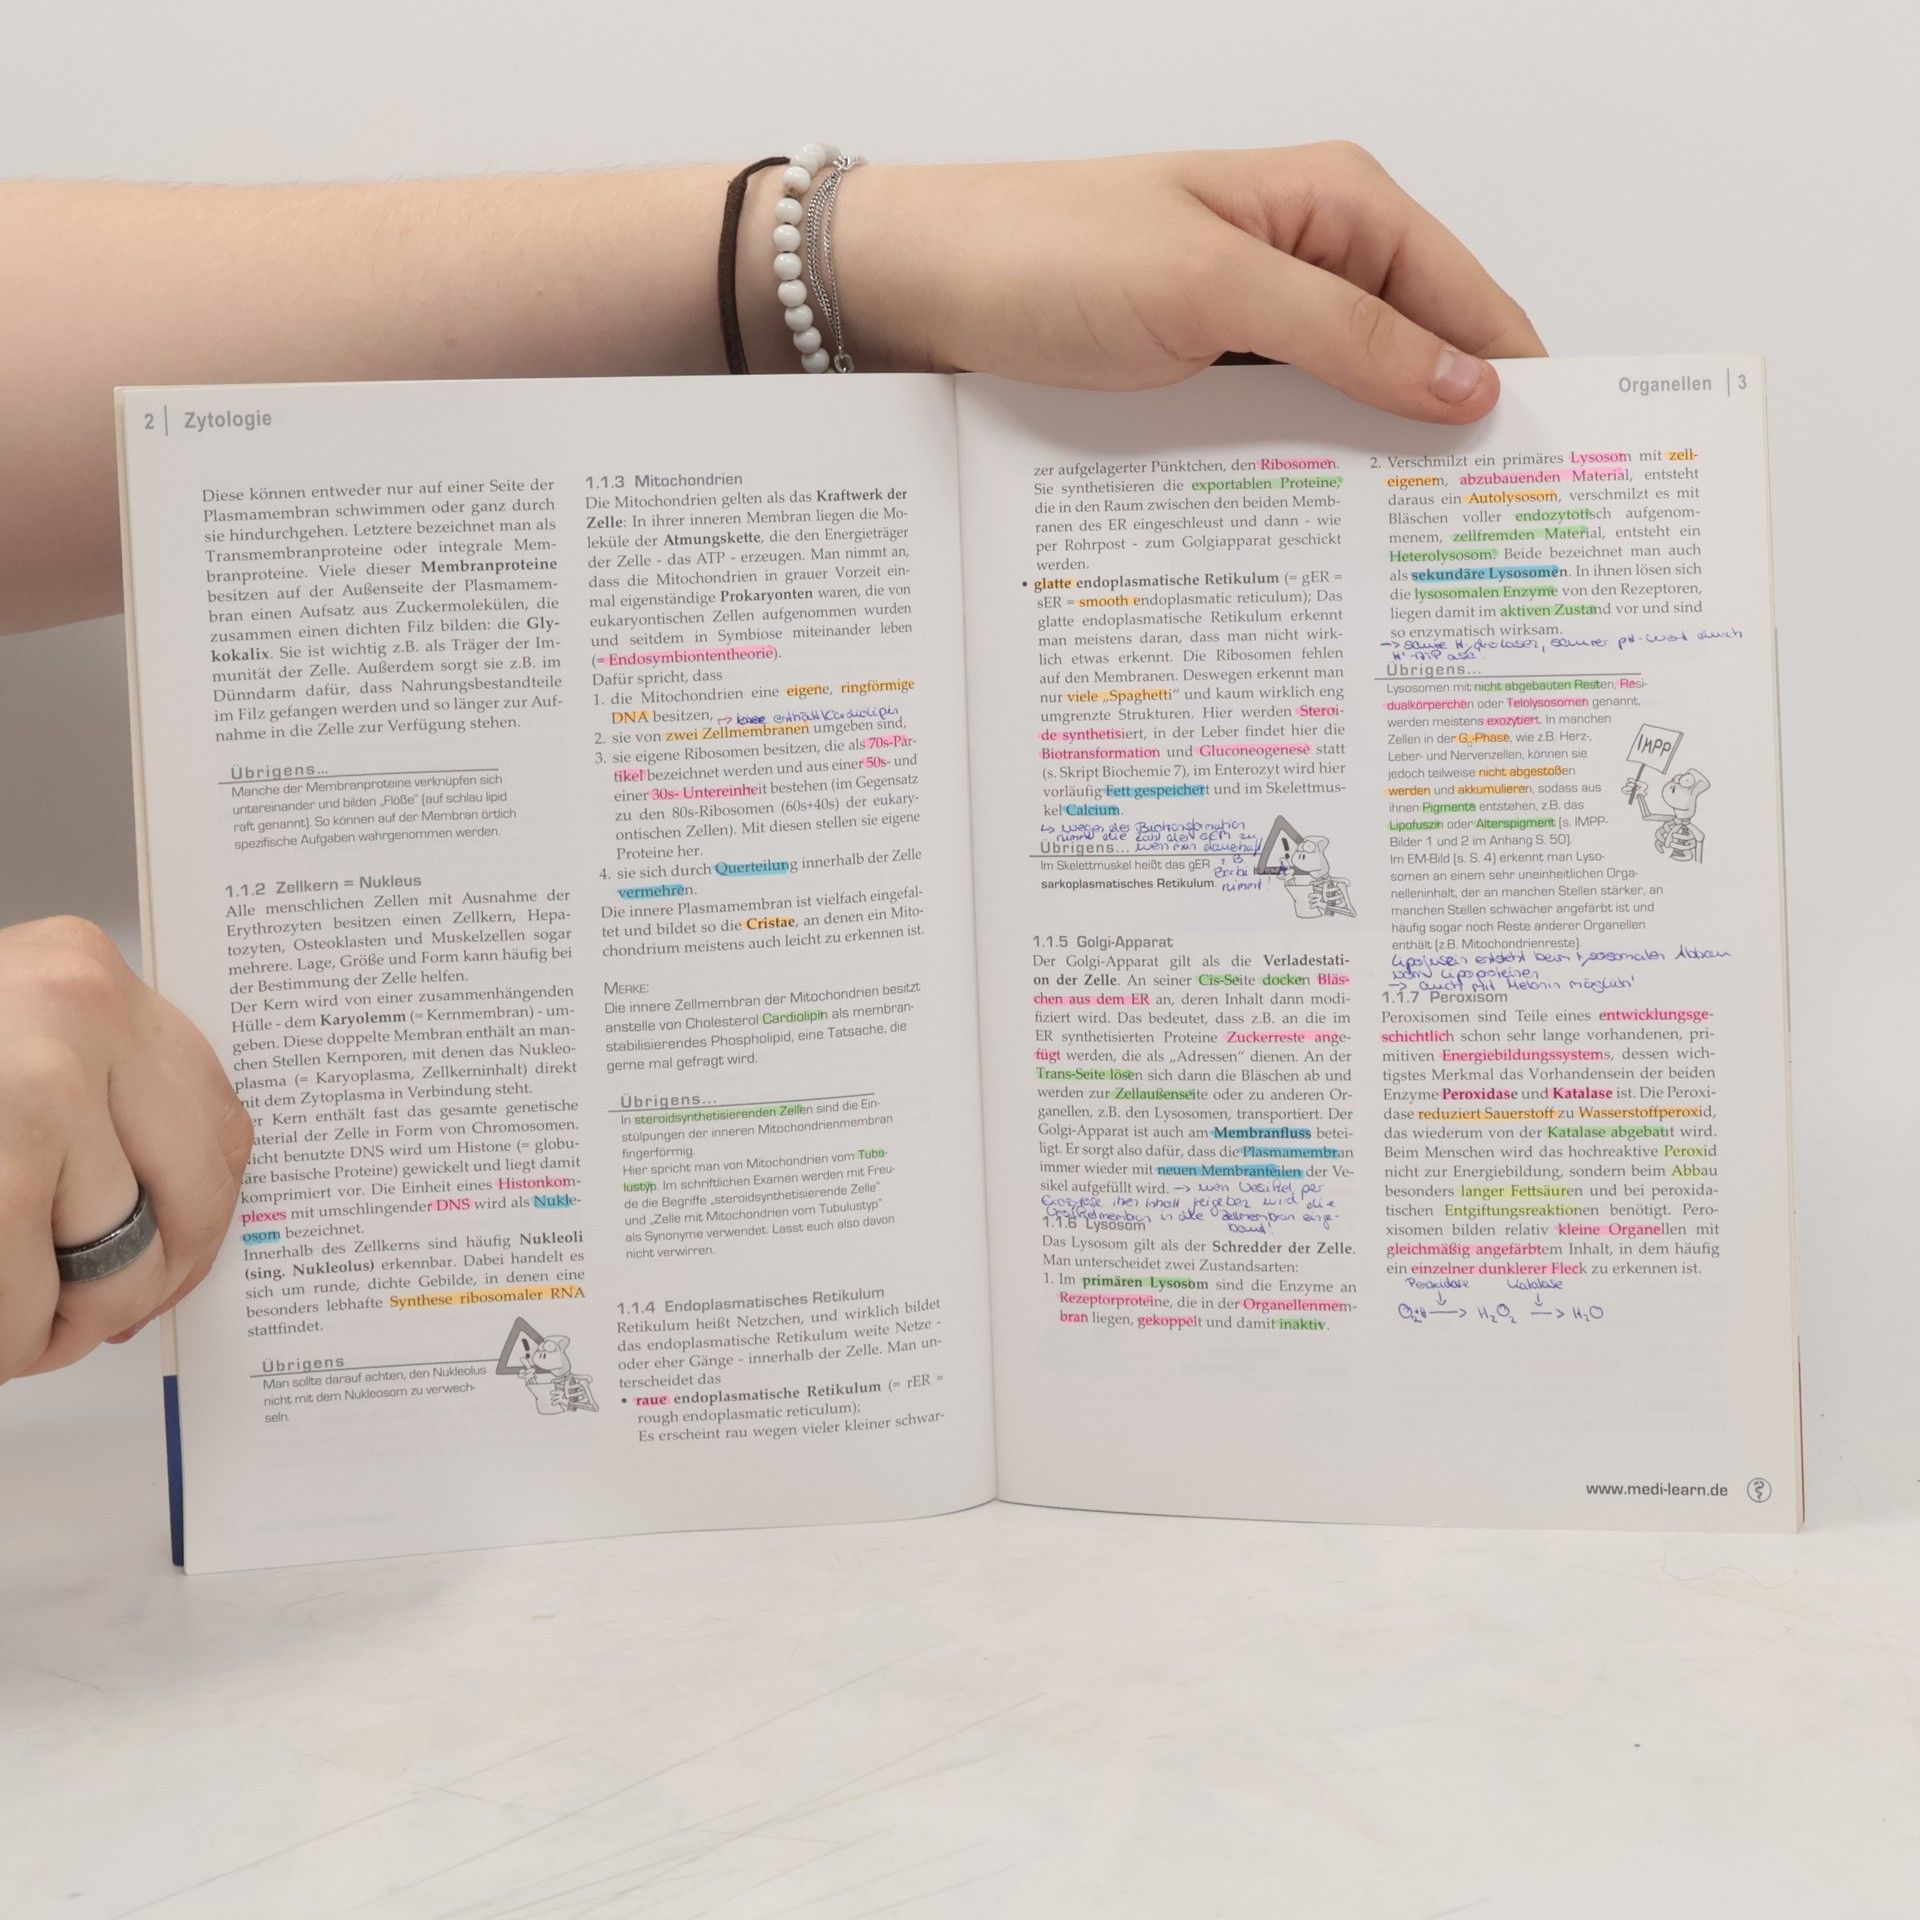 2 | Zytologie
Diese können entweder nur auf einer Seite der
Plasmamembran schwimmen oder ganz durch
sie hindurchgehen. Letztere bezeichnet man als
Transmembranproteine oder integrale Mem-
branproteine. Viele dieser Membranproteine
besitzen auf der Außenseite der Plasmamem-
bran einen Aufsatz aus Zuckermolekülen, die
zusammen einen dichten Filz bilden: die Gly-
kokalix. Sie ist wichtig z.B. als Träger der Im-
munität der Zelle. Außerdem sorgt sie z.B. im
Dünndarm dafür, dass Nahrungsbestandteile
im Filz gefangen werden und so länger zur Auf-
nahme in die Zelle zur Verfügung stehen.
Übrigens...
Manche der Membranproteine verknüpfen sich
untereinander und bilden „Flöße" (auf schlau lipid
raft genannt). So können auf der Membran örtlich
spezifische Aufgaben wahrgenommen werden.
1.1.2 Zellkern = Nukleus
Alle menschlichen Zellen mit Ausnahme der
Erythrozyten besitzen einen Zellkern, Hepa-
tozyten, Osteoklasten und Muskelzellen sogar
mehrere. Lage, Größe und Form kann häufig bei
der Bestimmung der Zelle helfen.
Der Kern wird von einer zusammenhängenden
Hülle - dem Karyolemm (= Kernmembran) - um-
geben. Diese doppelte Membran enthält an man-
chen Stellen Kernporen, mit denen das Nukleo-
plasma (= Karyoplasma, Zellkerninhalt) direkt
mit dem Zytoplasma in Verbindung steht.
er Kern enthält fast das gesamte genetische
aterial der Zelle in Form von Chromosomen.
icht benutzte DNS wird um Histone (= globu-
äre basische Proteine) gewickelt und liegt damit
komprimiert vor. Die Einheit eines Histonkom-
plexes mit umschlingender DNS wird als Nukle-
osom bezeichnet.
Innerhalb des Zellkerns sind häufig Nukleoli
(sing. Nukleolus) erkennbar. Dabei handelt es
sich um runde, dichte Gebilde, in denen eine
besonders lebhafte Synthese ribosomaler RNA
stattfindet.
Übrigens
Man sollte darauf achten, den Nukleolus
nicht mit dem Nukleosom zu verwech-
seln.
1.1.3 Mitochondrien
Die Mitochondrien gelten als das Kraftwerk der
Zelle: In ihrer inneren Membran liegen die Mo-
leküle der Atmungskette, die den Energieträger
der Zelle - das ATP - erzeugen. Man nimmt an,
dass die Mitochondrien in grauer Vorzeit ein-
mal eigenständige Prokaryonten waren, die von
eukaryontischen Zellen aufgenommen wurden
und seitdem in Symbiose miteinander leben
(= Endosymbiontentheorie).
Dafür spricht, dass
1. die Mitochondrien eine eigene, ringförmige
DNA besitzen, → enthält Cardiolipin
2. sie von zwei Zellmembranen umgeben sind,
3. sie eigene Ribosomen besitzen, die als 70s-Par-
tikel bezeichnet werden und aus einer 50s- und
einer 30s- Untereinheit bestehen (im Gegensatz
zu den 80s-Ribosomen (60s+40s) der eukary-
ontischen Zellen). Mit diesen stellen sie eigene
Proteine her.
4. sie sich durch Querteilung innerhalb der Zelle
vermehren.
Die innere Plasmamembran ist vielfach eingefal-
tet und bildet so die Cristae, an denen ein Mito-
chondrium meistens auch leicht zu erkennen ist.
MERKE:
Die innere Zellmembran der Mitochondrien besitzt
anstelle von Cholesterol Cardiolipin als membran-
stabilisierendes Phospholipid, eine Tatsache, die
gerne mal gefragt wird.
Übrigens...
In steroidsynthetisierenden Zellen sind die Ein-
stülpungen der inneren Mitochondrienmembran
fingerförmig.
Hier spricht man von Mitochondrien vom Tubu-
lustyp. Im schriftlichen Examen werden mit Freu-
de die Begriffe „steroidsynthetisierende Zelle"
und „Zelle mit Mitochondrien vom Tubulustyp"
als Synonyme verwendet. Lasst euch also davon
nicht verwirren.
1.1.4 Endoplasmatisches Retikulum
Retikulum heißt Netzchen, und wirklich bildet
das endoplasmatische Retikulum weite Netze -
oder eher Gänge - innerhalb der Zelle. Man un-
terscheidet das
• raue endoplasmatische Retikulum (= rER =
rough endoplasmatic reticulum);
Es erscheint rau wegen vieler kleiner schwar-
Organellen | 3
zer aufgelagerter Pünktchen, den Ribosomen.
Sie synthetisieren die exportablen Proteine,
die in den Raum zwischen den beiden Memb-
ranen des ER eingeschleust und dann - wie
per Rohrpost - zum Golgiapparat geschickt
werden.
• glatte endoplasmatische Retikulum (= gER =
sER = smooth endoplasmatic reticulum); Das
glatte endoplasmatische Retikulum erkennt
man meistens daran, dass man nicht wirk-
lich etwas erkennt. Die Ribosomen fehlen
auf den Membranen. Deswegen erkennt man
nur viele „Spaghetti" und kaum wirklich eng
umgrenzte Strukturen. Hier werden Steroi-
de synthetisiert, in der Leber findet hier die
Biotransformation und Gluconeogenese statt
(s. Skript Biochemie 7), im Enterozyt wird hier
vorläufig Fett gespeichert und im Skelettmus-
kel Calcium.
↳ wegen der Biotransformation
nimmt die Zahl der GER zu,
Übrigens... wenn man dauerhaft
Im Skelettmuskel heißt das gER z.B.
sarkoplasmatisches Retikulum. nimmt!
1.1.5 Golgi-Apparat
Der Golgi-Apparat gilt als die Verladestati-
on der Zelle. An seiner Cis-Seite docken Bläs-
chen aus dem ER an, deren Inhalt dann modi-
fiziert wird. Das bedeutet, dass z.B. an die im
ER synthetisierten Proteine Zuckerreste ange-
fügt werden, die als „Adressen" dienen. An der
Trans-Seite lösen sich dann die Bläschen ab und
werden zur Zellaußenseite oder zu anderen Or-
ganellen, z.B. den Lysosomen, transportiert. Der
Golgi-Apparat ist auch am Membranfluss betei-
ligt. Er sorgt also dafür, dass die Plasmamembran
immer wieder mit neuen Membranteilen der Ve-
sikel aufgefüllt wird. → wenn Vesikel per
Exozytose ihren Inhalt freigeben wird die
Vesikelmembran in die Zellmembran einge-
baut!
1.1.6 Lysosom
Das Lysosom gilt als der Schredder der Zelle.
Man unterscheidet zwei Zustandsarten:
1. Im primären Lysosom sind die Enzyme an
Rezeptorproteine, die in der Organellenmem-
bran liegen, gekoppelt und damit inaktiv.
2. Verschmilzt ein primäres Lysosom mit zell-
eigenem, abzubauenden Material, entsteht
daraus ein Autolysosom, verschmilzt es mit
Bläschen voller endozytotisch aufgenom-
menem, zellfremden Material, entsteht ein
Heterolysosom. Beide bezeichnet man auch
als sekundäre Lysosomen. In ihnen lösen sich
die lysosomalen Enzyme von den Rezeptoren,
liegen damit im aktiven Zustand vor und sind
so enzymatisch wirksam.
→ saure Hydrolasen, saurer pH-Wert durch
H⁺-ATPase.
Übrigens...
Lysosomen mit nicht abgebauten Resten, Resi-
dualkörperchen oder Telolysosomen genannt,
werden meistens exozytiert. In manchen
Zellen in der G₀-Phase, wie z.B. Herz-,
Leber- und Nervenzellen, können sie
jedoch teilweise nicht abgestoßen
werden und akkumulieren, sodass aus
ihnen Pigmente entstehen, z.B. das
Lipofuszin oder Alterspigment (s. IMPP-
Bilder 1 und 2 im Anhang S. 50).
Im EM-Bild (s. S. 4) erkennt man Lyso-
somen an einem sehr uneinheitlichen Orga-
nelleninhalt, der an manchen Stellen stärker, an
manchen Stellen schwächer angefärbt ist und
häufig sogar noch Reste anderer Organellen
enthält (z.B. Mitochondrienreste).
IMPP
Lipofuszin entsteht beim lysosomalen Abbau
von Lipoproteinen
→ auch mit Melanin möglich!
1.1.7 Peroxisom
Peroxisomen sind Teile eines entwicklungsge-
schichtlich schon sehr lange vorhandenen, pri-
mitiven Energiebildungssystems, dessen wich-
tigstes Merkmal das Vorhandensein der beiden
Enzyme Peroxidase und Katalase ist. Die Peroxi-
dase reduziert Sauerstoff zu Wasserstoffperoxid,
das wiederum von der Katalase abgebaut wird.
Beim Menschen wird das hochreaktive Peroxid
nicht zur Energiebildung, sondern beim Abbau
besonders langer Fettsäuren und bei peroxida-
tischen Entgiftungsreaktionen benötigt. Pero-
xisomen bilden relativ kleine Organellen mit
gleichmäßig angefärbtem Inhalt, in dem häufig
ein einzelner dunklerer Fleck zu erkennen ist.
Peroxidase Katalase
→ H₂O₂ → H₂O
www.medi-learn.de